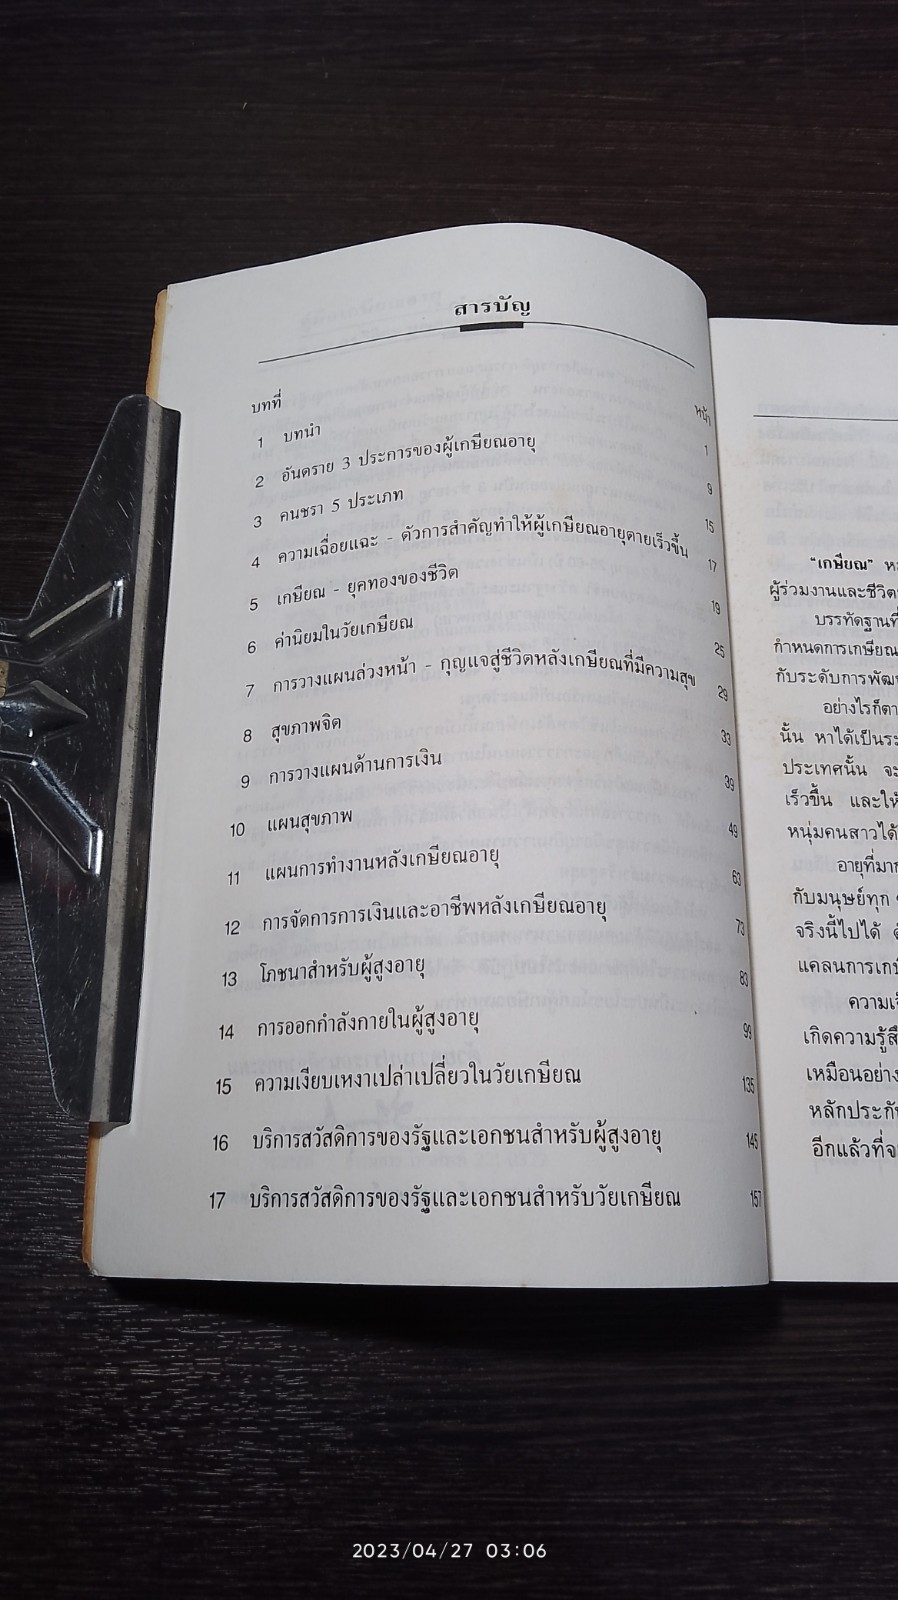 สารบัญ
บทที่ หน้า
1 บทนำ 1
2 อันตราย 3 ประการของผู้เกษียณอายุ 9
3 คนชรา 5 ประเภท 15
4 ความเฉื่อยแฉะ - ตัวการสำคัญทำให้ผู้เกษียณอายุตายเร็วขึ้น 17
5 เกษียณ - ยุคทองของชีวิต 19
6 ค่านิยมในวัยเกษียณ 25
7 การวางแผนล่วงหน้า - กุญแจสู่ชีวิตหลังเกษียณที่มีความสุข 29
8 สุขภาพจิต 33
9 การวางแผนด้านการเงิน 39
10 แผนสุขภาพ 49
11 แผนการทำงานหลังเกษียณอายุ 63
12 การจัดการการเงินและอาชีพหลังเกษียณอายุ 73
13 โภชนาสำหรับผู้สูงอายุ 83
14 การออกกำลังกายในผู้สูงอายุ 99
15 ความเงียบเหงาเปล่าเปลี่ยวในวัยเกษียณ 135
16 บริการสวัสดิการของรัฐและเอกชนสำหรับผู้สูงอายุ 145
17 บริการสวัสดิการของรัฐและเอกชนสำหรับวัยเกษียณ 157
"เกษียณ"
ผู้ร่วมงานและชีวิต
บรรทัดฐานที่
กำหนดการเกษียณ
กับระดับการพัฒ
อย่างไรก็ตา
นั้น หาได้เป็นระ
ประเทศนั้น จะ
เร็วขึ้น และให้
หนุ่มคนสาวได้
อายุที่มา
กับมนุษย์ทุก
จริงนี้ไปได้
แคลนการเก
ความเ
เกิดความรู้สึ
เหมือนอย่าง
หลักประกั
อีกแล้วที่จ
2023/04/27 03:06